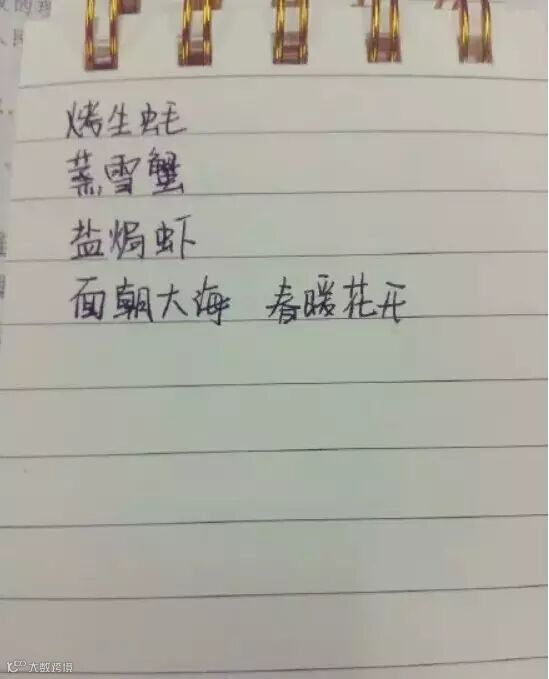 烤生蚝
蒸雪蟹
盐焗虾
面朝大海 春暖花开
大数跨境